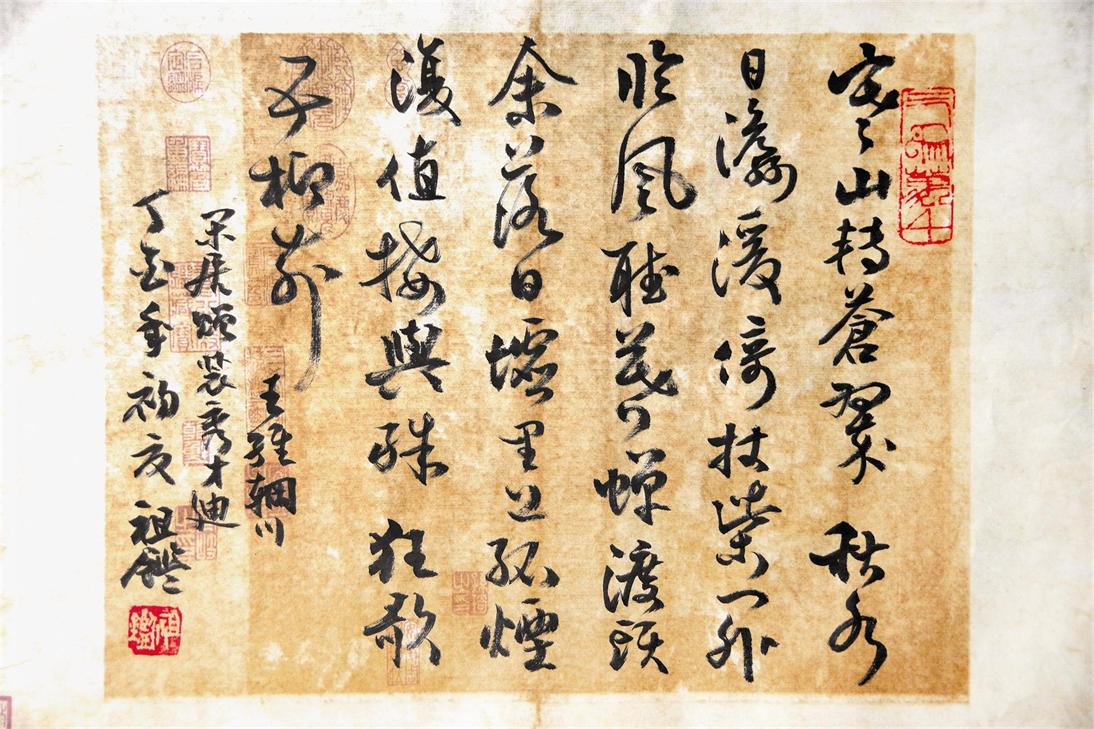 寒山轉蒼翠 秋水
日潺湲倚杖柴門外
臨風聽暮蟬渡頭
余落日墟里上孤煙
復值接輿醉 狂歌
五柳前 王維輞川
閑居贈裴秀才迪
丁亥年初夏 祖鑑
祖鑑